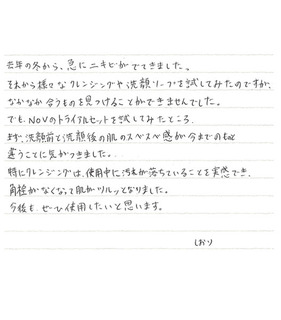 去年の冬から、急にニキビがでてきました。
それから様々なクレンジングや洗顔ソープを試してみたのですが、
なかなか合うものを見つけることができませんでした。
でも、NOVのトライアルセットを試してみたところ、
まず、洗顔前と洗顔後の肌のスベスベ感が今までのものと
違うことに気がつきました。
特にクレンジングは、使用中に汚れが落ちていることを実感でき、
角栓がなくなって肌がツルッとなりました。
今後も、ぜひ使用したいと思います。
しおり